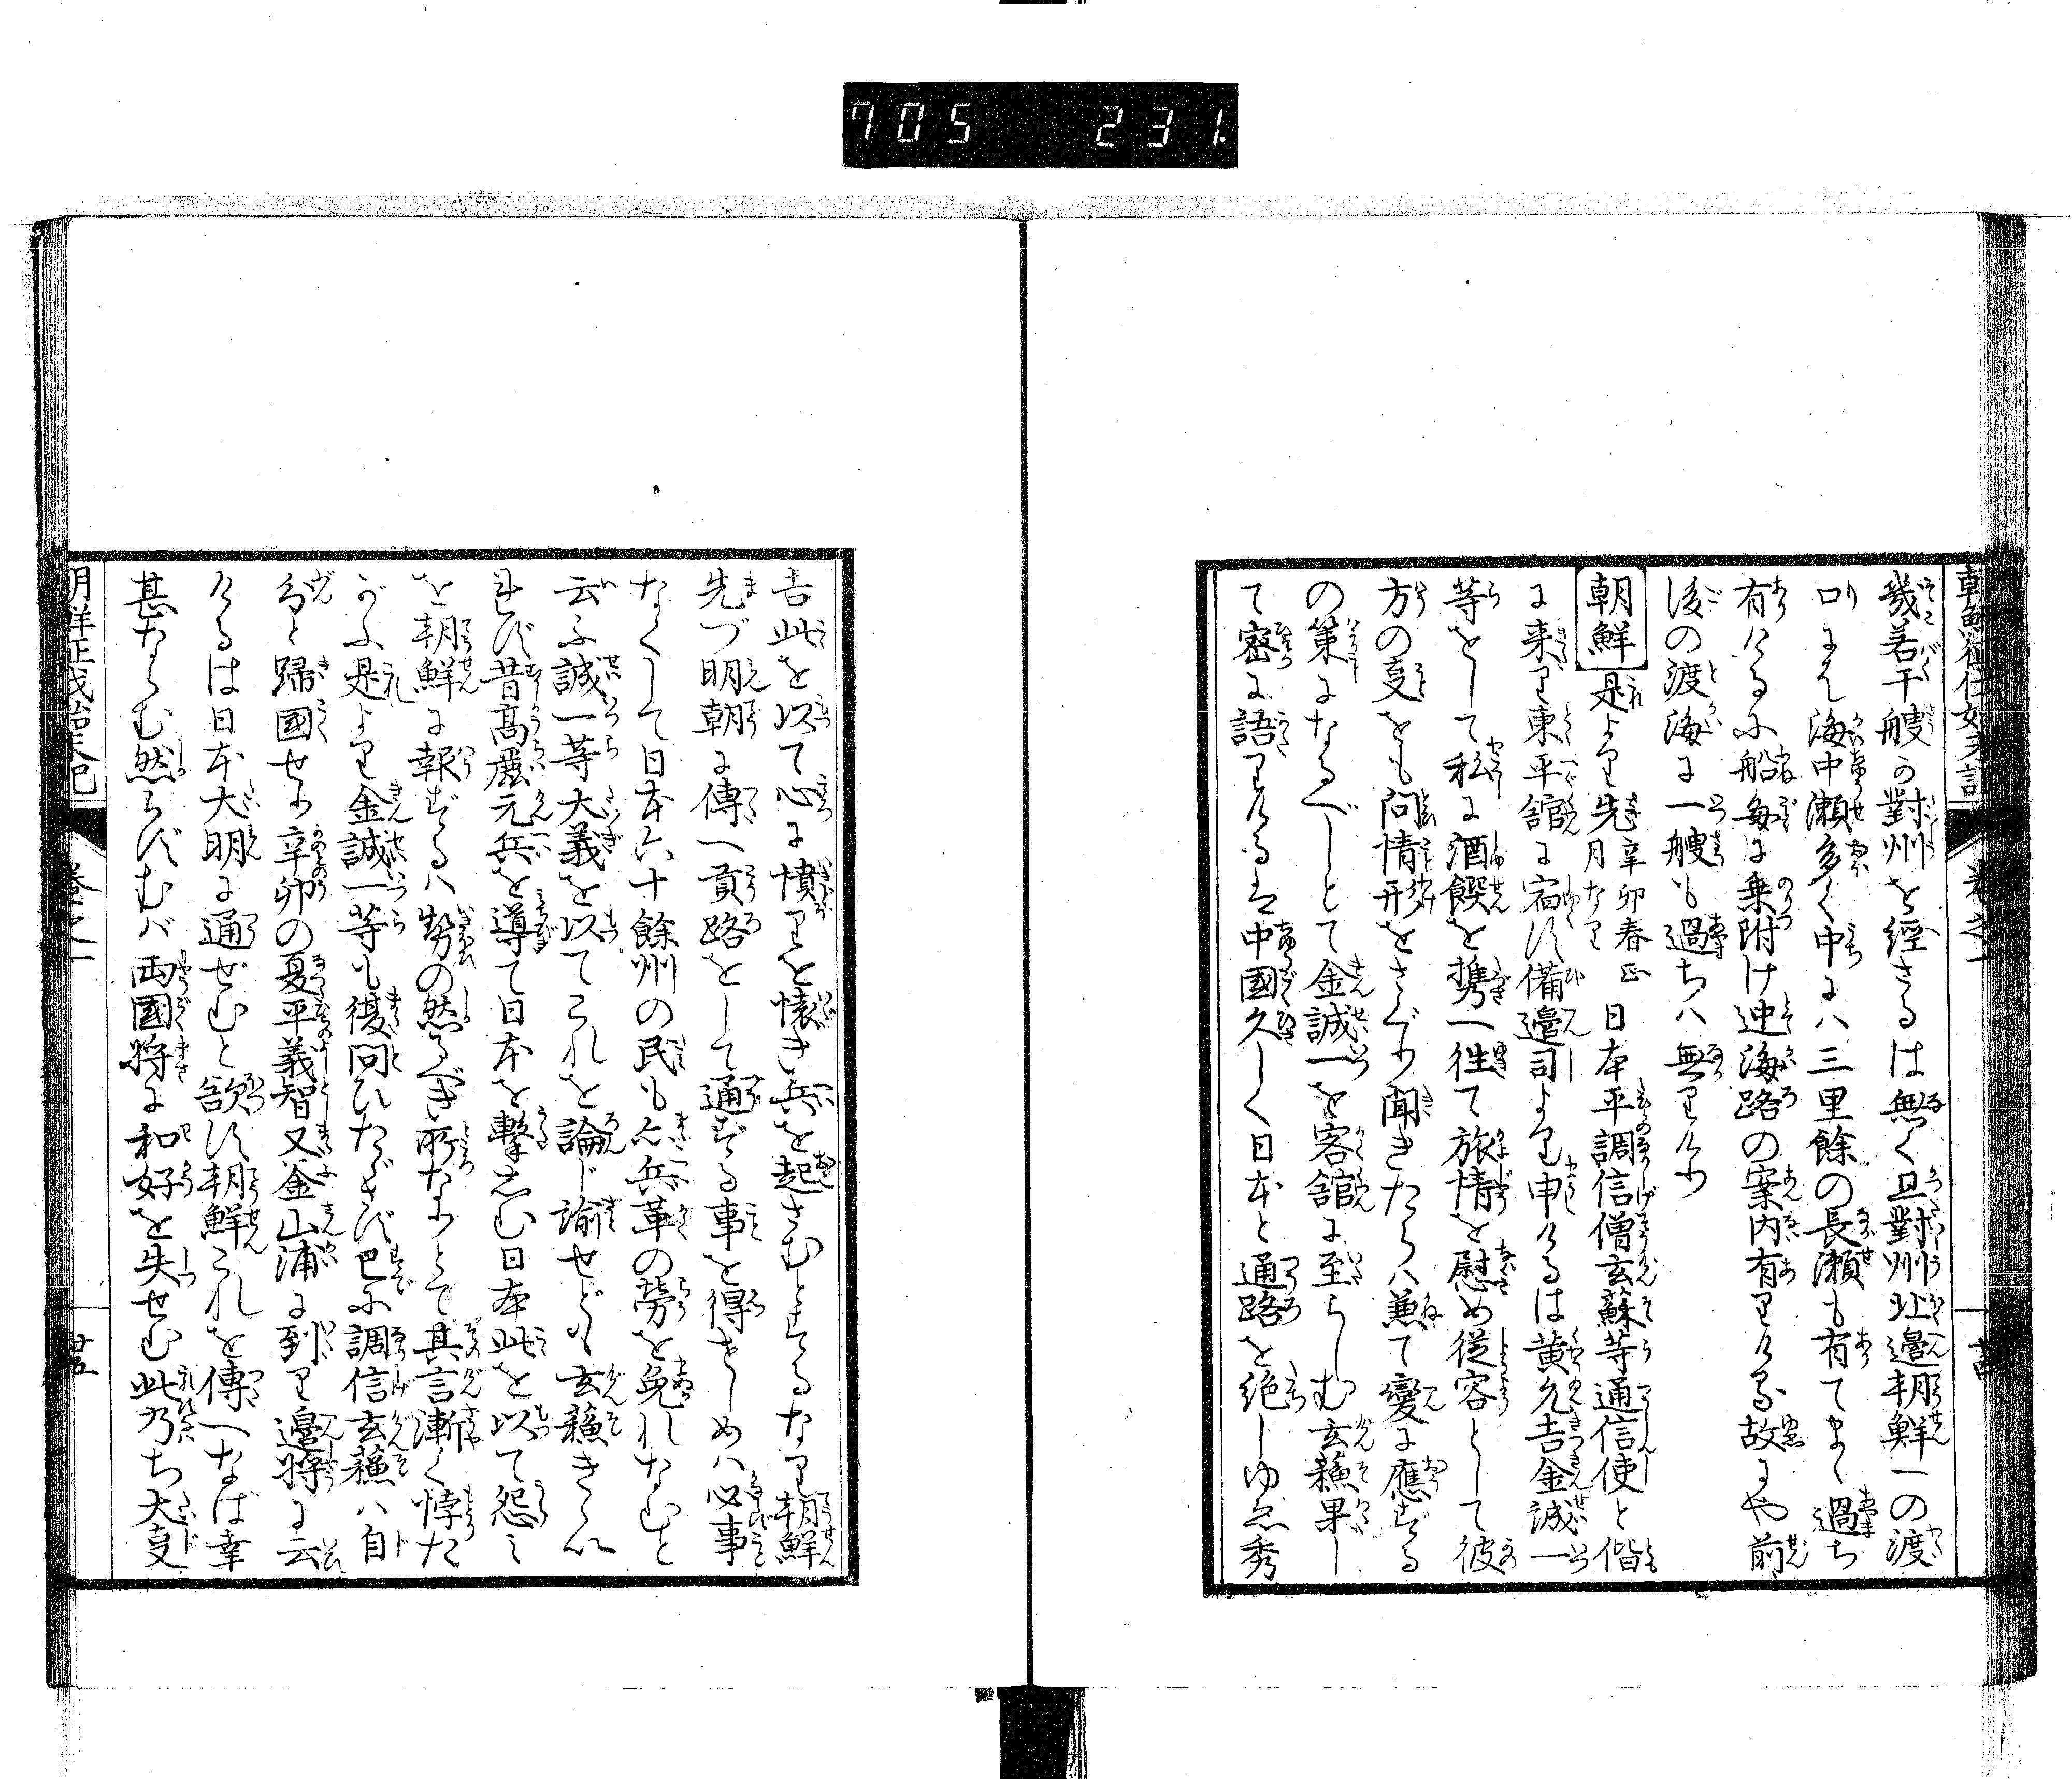 705 231
幾若干艘の對州を經さるは無く且對州北邊朝鮮一の渡
口よ〳〵海中瀬多く中に八三里餘の長瀬も有てまゝ過ち
有けるに船毎に乗附け沖海路の案内有りける故にや前
後の渡海に一艘も過ちハ無りけり
朝鮮 是より先辛卯春正月なり日本平調信僧玄蘇等通信使と偕
に来り東平舘に宿す備邊司より申けるは黄允吉金誠一
等をして私に酒饌を携へ往て旅情を慰め従容として彼
方の事をも問情形をさぐり聞きたらハ兼て變に應ずる
の策になるべしとて金誠一を客舘に至らしむ玄蘓果し
て密に語りけるは中國久しく日本と通路を絶しゆゑ秀
吉此を以て心に憤りを懐き兵を起さむとするなり朝鮮
先づ明朝に傳へ貢路をして通ずる事を得せしめハ必事
なくして日本六十餘州の民も亦兵革の勞を免れなむと
云ふ誠一等大義を以てこれを論じ諭せども玄蘓きかす
再び昔高麗元兵を導て日本を撃しむ日本此を以て怨ミ
を朝鮮に報ずるハ勢の然るべき所なりとて其言漸く悖た
がふ是より金誠一等も復問ひたゞさず已に調信玄蘓ハ自
分と歸國せり辛卯の夏平義智又釜山浦に到り邉將に云
けるは日本大明に通ぜむと欲す朝鮮これを傳へなば幸
甚ならむ然らずむバ両國將に和好を失せむ此乃ち大事
朝鮮征伐始末記 卷之一 廿五